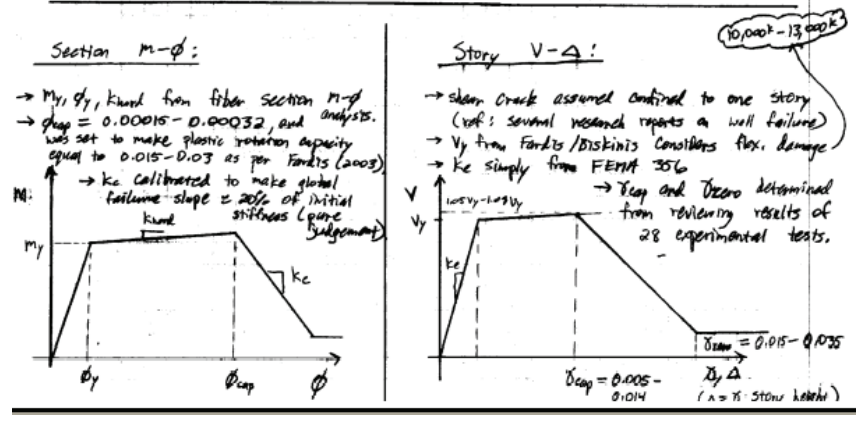 Section M-φ:
→ My, φy, khard from fiber section M-φ
analysis.
→ φcap = 0.00015 - 0.00032, and
was set to make plastic rotation capacity
equal to 0.015-0.03 as per Fardis (2003)
→ kc calibrated to make global
failure slope ≈ 20% of initial
stiffness (pure
judgement)
M
khard
My
kc
φy
φcap
φ
10,000k - 13,000k
Story V-Δ:
→ shear crack assumed confined to one story
(ref: several research reports on wall failure)
→ Vy from Fardis/Biskinis considers flex. damage
→ ke simply from FEMA 356
→ γcap and γzero determined
from reviewing results of
28 experimental tests.
V
Vy
ke
γzero = 0.015-0.035
γcap = 0.005 -
0.014
γ, Δ
(Δ = γ · story height)